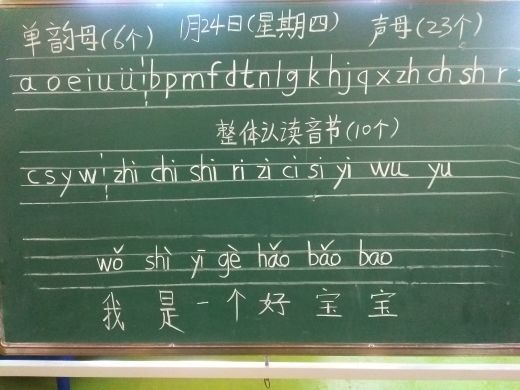 单韵母(6个) 1月24日(星期四) 声母(23个)
a o e i u ü b p m f d t n l g k h j q x zh ch sh r z
整体认读音节(10个)
c s y w zhi chi shi ri zi ci si yi wu yu
wǒ shì yī gè hǎo bǎo bao
我是一个好宝宝